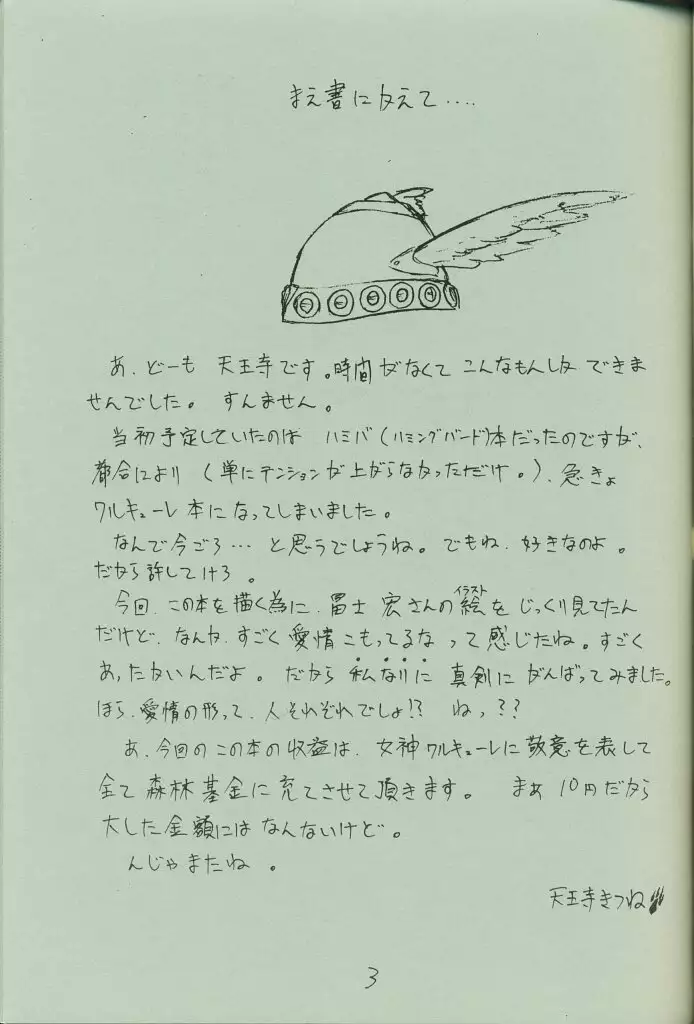 まえ書に女えて‥‥
あ、どーも 天王寺です。時間がなくて こんなもんしか できま
せんでした。 すんません。
当初予定していたのは ハミバ(ハミングバード)本だったのですが、
都合により (単にテンションが上がらなかっただけ。)、急きょ
ワルキューレ本になってしまいました。
なんで今ごろ… と思うでしょうね。でもね、好きなのよ。
だから許してけろ。
今回、この本を描く為に、冨士 宏さんの絵をじっくり見てたん
イラスト
だけど、なんか、すごく愛情こもってるなって感じたね。すごく
あったかいんだよ。だから 私なりに 真剣に がんばってみました。
ほら、愛情の形って、人それぞれでしょ!? ねっ??
あ、今回のこの本の収益は、女神ワルキューレに敬意を表して
全て 森林基金に充てさせて頂きます。 まぁ 10円だから
大した金額にはなんないけど。
んじゃまたね 。
天王寺きつね
3